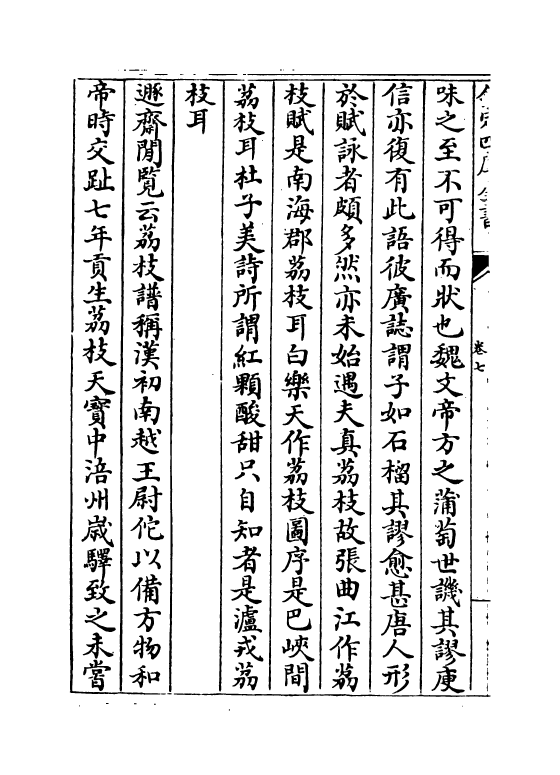 卷七
味之至不可得而狀也魏文帝方之蒲萄世譏其謬庾
信亦復有此語彼廣誌謂子如石榴其謬愈甚唐人形
於賦詠者頗多然亦未始遇夫真荔枝故張曲江作荔
枝賦是南海郡荔枝耳白樂天作荔枝圖序是巴峽間
荔枝耳杜子美詩所謂紅顆酸甜只自知者是瀘戎荔
枝耳
遯齋閒覽云荔枝譜稱漢初南越王尉佗以備方物和
帝時交趾七年貢生荔枝天寶中涪州嵗驛致之未嘗